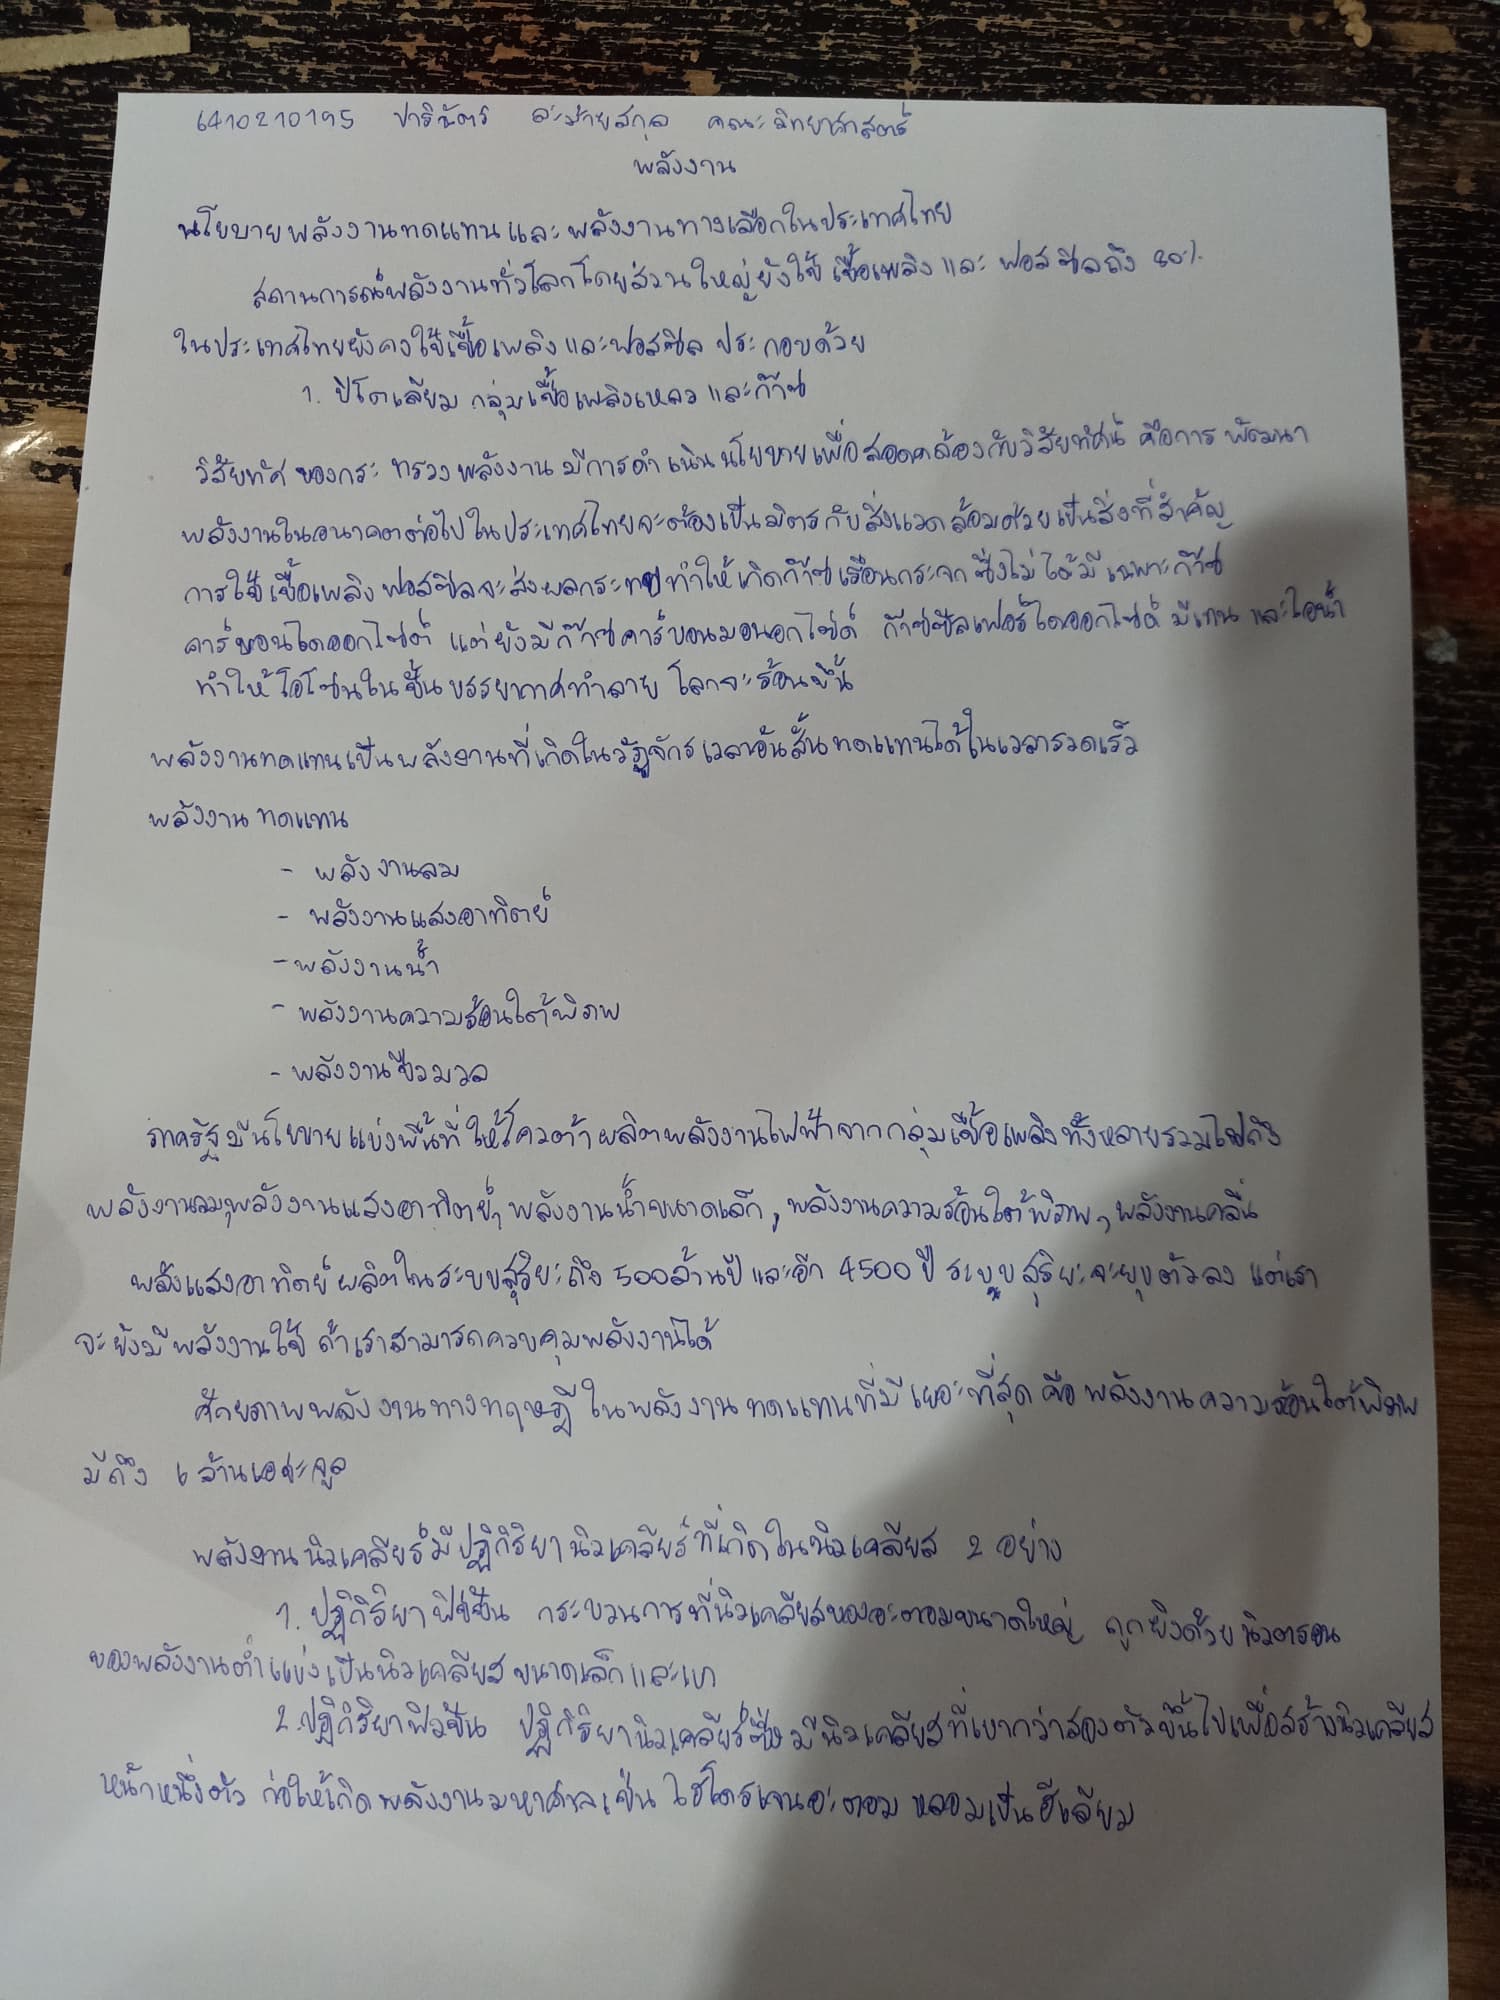 6410210195 ปาริฉัตร์ ล่ะม้ายสกุล คณะวิทยาศาสตร์
พลังงาน
นโยบายพลังงานทดแทนและพลังงานทางเลือกในประเทศไทย
สถานการณ์พลังงานทั่วโลกโดยส่วนใหญ่ยังใช้เชื้อเพลิงและฟอสซิลถึง 80%
ในประเทศไทยยังคงใช้เชื้อเพลิงและฟอสซิล ประกอบด้วย
1. ปิโตเลียม กลุ่มเชื้อเพลิงเหลวและก๊าซ
วิสัยทัศ ของกระทรวงพลังงาน มีการดำเนินนโยบายเพื่อสอดคล้องกับวิสัยทัศน์ คือการพัฒนา
พลังงานในอนาคตต่อไปในประเทศไทยจะต้องเป็นมิตรกับสิ่งแวดล้อมด้วยเป็นสิ่งที่สำคัญ
การใช้เชื้อเพลิงฟอสซิลจะส่งผลกระทบทำให้เกิดก๊าซเรือนกระจก ซึ่งไม่ได้มีเฉพาะก๊าซ
คาร์บอนไดออกไซด์ แต่ยังมีก๊าซคาร์บอนมอนอกไซด์ ก๊าซซัลเฟอร์ไดออกไซด์ มีเทน และไอน้ำ
ทำให้โอโซนในชั้นบรรยากาศทำลาย โลกจะร้อนขึ้น
พลังงานทดแทนเป็นพลังงานที่เกิดในวัฏจักรเวลาอันสั้นทดแทนได้ในเวลารวดเร็ว
พลังงานทดแทน
- พลังงานลม
- พลังงานแสงอาทิตย์
- พลังงานน้ำ
- พลังงานความร้อนใต้พิภพ
- พลังงานชีวมวล
ภาครัฐมีนโยบายแบ่งพื้นที่ให้โควต้าผลิตพลังงานไฟฟ้าจากกลุ่มเชื้อเพลิงทั้งหลายรวมไปถึง
พลังงานลม,พลังงานแสงอาทิตย์, พลังงานน้ำขนาดเล็ก, พลังงานความร้อนใต้พิภพ, พลังงานคลื่น
พลังแสงอาทิตย์ผลิตในระบบสุริยะถึง 500ล้านปี และอีก 4500 ปี ระบบสุริยะจะยุบตัวลง แต่เรา
จะยังมีพลังงานใช้ ถ้าเราสามารถควบคุมพลังงานได้
ศักยภาพพลังงานทางทฤษฎี ในพลังงานทดแทนที่มีเยอะที่สุด คือ พลังงานความร้อนใต้พิภพ
มีถึง 6 ล้านเอชะจูล
พลังงานนิวเคลียร์มีปฏิกิริยานิวเคลียร์ที่เกิดในนิวเคลียส 2 อย่าง
1. ปฏิกิริยาฟิชชัน กระบวนการที่นิวเคลียสของอะตอมขนาดใหญ่ ถูกยิงด้วยนิวตรอน
ของพลังงานต่ำแบ่งเป็นนิวเคลียสขนาดเล็กและเบา
2.ปฏิกิริยาฟิวชัน ปฏิกิริยานิวเคลียร์ซึ่งมีนิวเคลียสที่เบากว่าสองตัวขึ้นไปเพื่อสร้างนิวเคลียส
หน้าหนึ่งตัว ก่อให้เกิดพลังงานมหาศาล เช่น ไฮโดรเจนอะตอม หลอมเป็นฮีเลียม